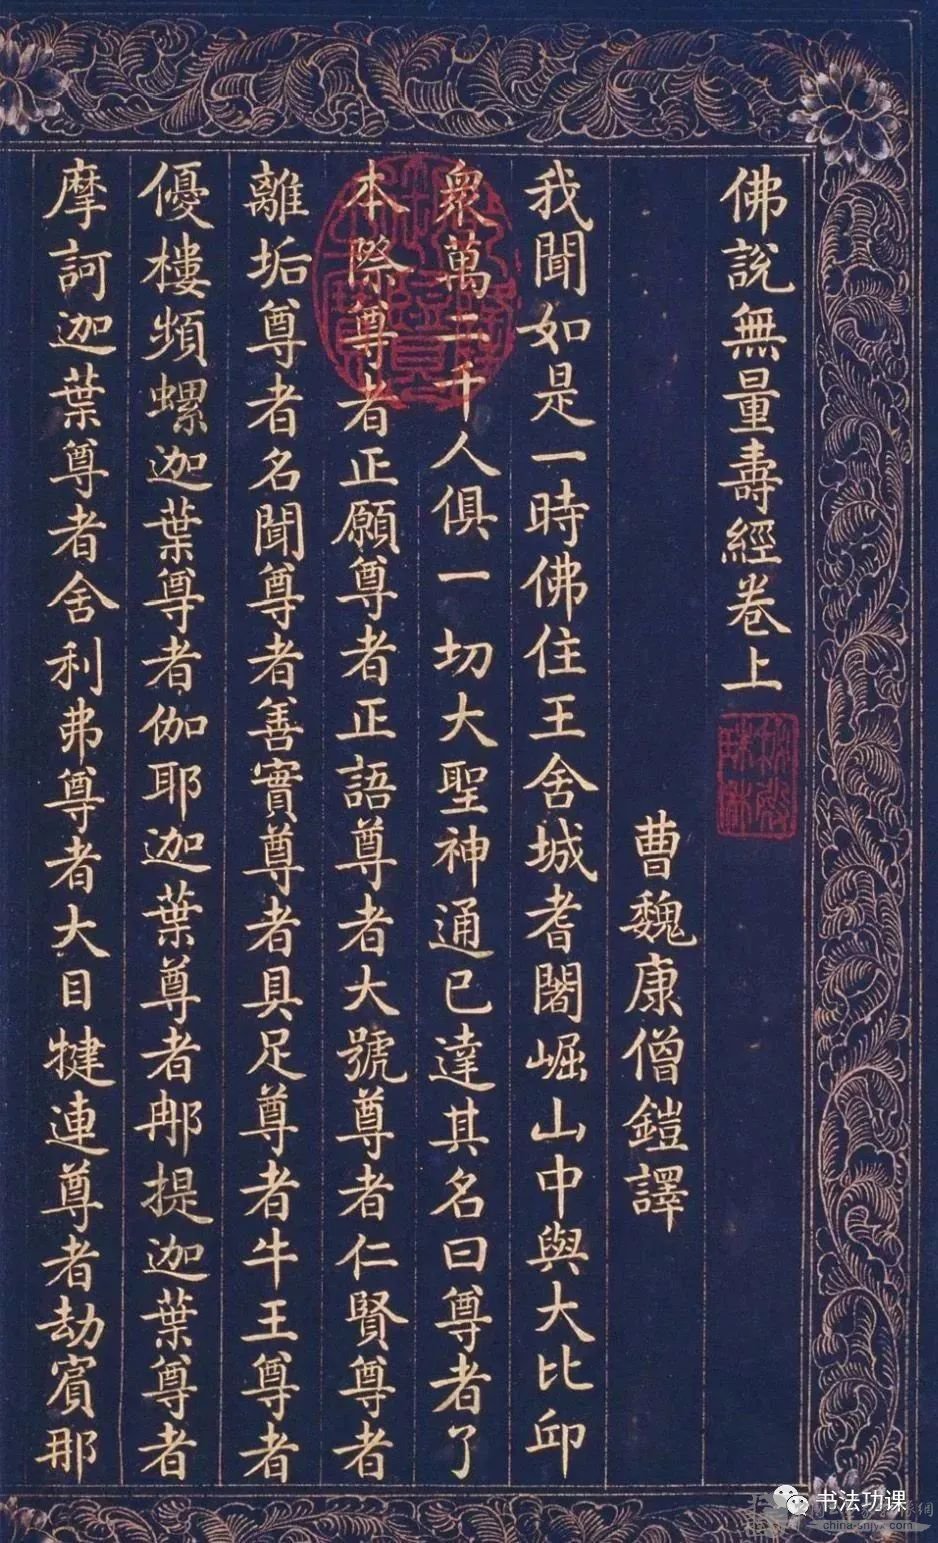 佛說無量壽經卷上
曹魏康僧鎧譯
我聞如是一時佛住王舍城耆闍崛山中與大比邱
衆萬二千人俱一切大聖神通已達其名曰尊者了
本際尊者正願尊者正語尊者大號尊者仁賢尊者
離垢尊者名聞尊者善實尊者具足尊者牛王尊者
優樓頻螺迦葉尊者伽耶迦葉尊者那提迦葉尊者
摩訶迦葉尊者舍利弗尊者大目犍連尊者劫賓那
书法功课
china-snjyx.com